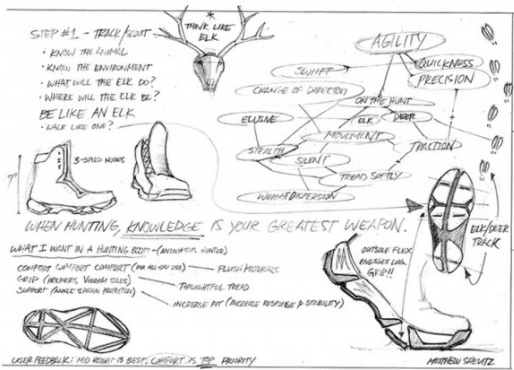 STEP #1 - TRACK/SCOUT
• KNOW THE ANIMAL
• KNOW THE ENVIRONMENT
• WHAT WILL THE ELK DO?
• WHERE WILL THE ELK BE?
BE LIKE AN ELK
• WALK LIKE ONE?
* THINK LIKE
ELK
AGILITY
SWIFT
QUICKNESS
PRECISION
CHANGE OF DIRECTION
ON THE HUNT
ELUSIVE
ELK
DEER
MOVEMENT
STEALTH
TRACTION
SILENT
TREAD SOFTLY
WEIGHT DISPERSION
3-SPEED HOOKS
7"
WHEN HUNTING, KNOWLEDGE IS YOUR GREATEST WEAPON.
WHAT I WANT IN A HUNTING BOOT - (ANONYMOUS HUNTER)
COMFORT COMFORT COMFORT (FOR ALL DAY USE) PLUSH MATERIALS
GRIP (PREFERS VIBRAM SOLES) THOUGHTFUL TREAD
SUPPORT (ANKLE PROTECTION)
INCREASE FIT (INCREASE RESPONSE & STABILITY)
OUTSOLE FLEX
ENGAGES LUG
GRIP!!
ELK/DEER
TRACK
USER FEEDBACK: MID HEIGHT IS BEST. COMFORT IS TOP PRIORITY
MATTHEW